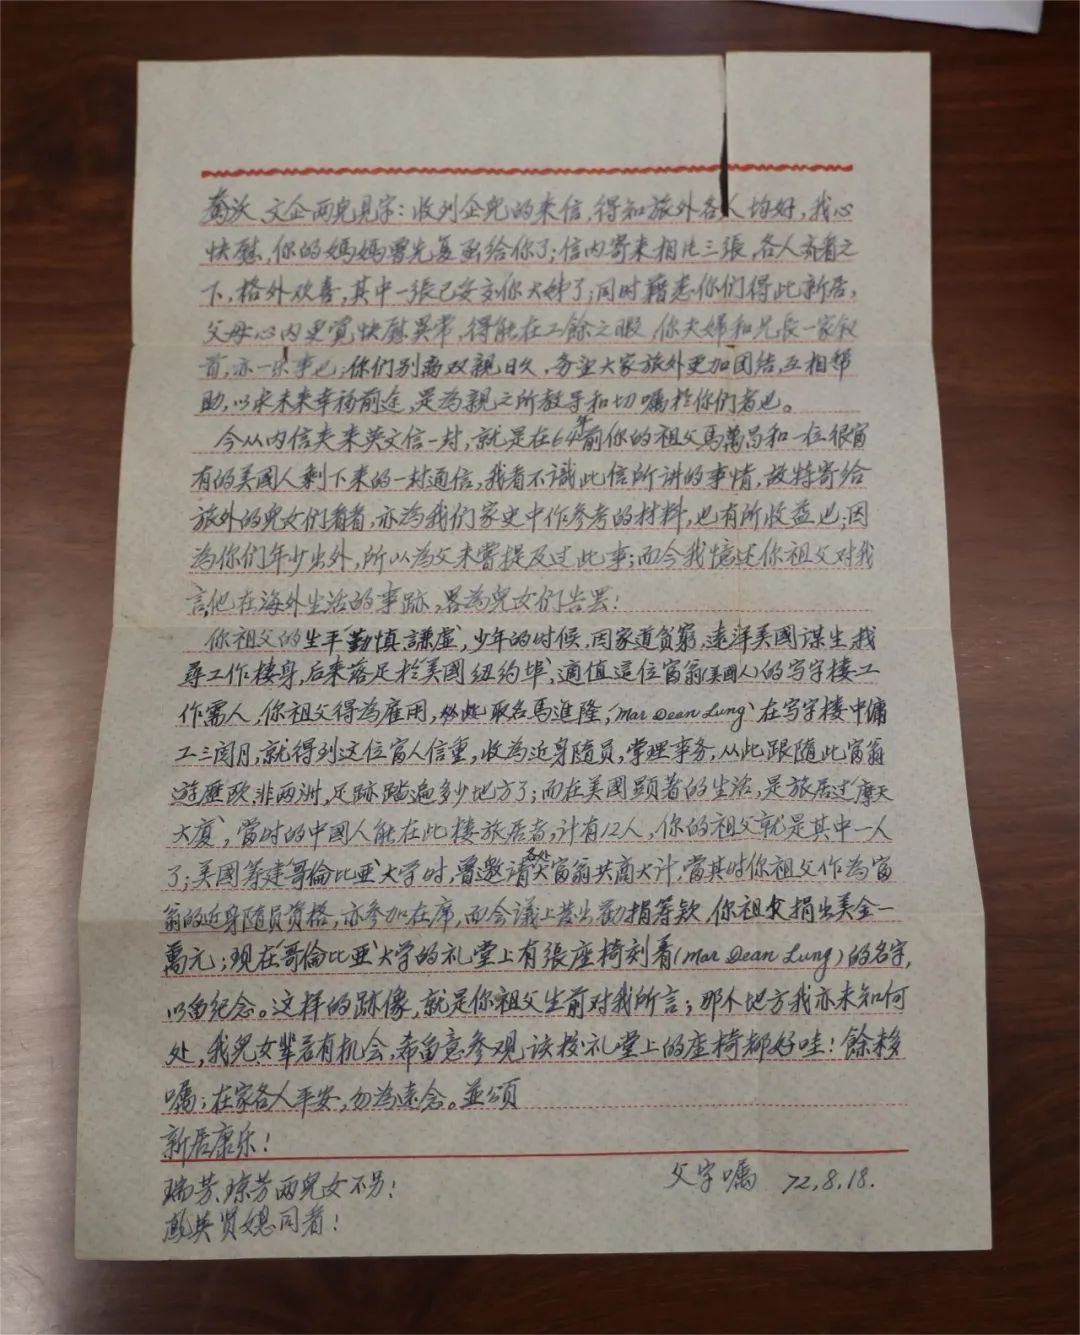 沃、文企两兒見字：收到企兒的来信，得知旅外各人均好，我心
快慰，你的媽媽曾先复函给你了；信内寄来相片三張，各人齐看之
下，格外欢喜，其中一張已安交你大姊了；同时藉悉你们得此新居，
父母心内更覚快慰異常，得能在工餘之暇，你夫婦和兄長一家叙
首，亦一乐事也；你们别离双親日久，务望大家旅外更加团结，互相帮
助，以求未来幸福前途，是為親之所教导和切嘱於你们者也。
今从内信夹来英文信一封，就是在64年前你的祖父馬萬昌和一位很富
有的美國人剩下来的一封通信，我看不識此信所讲的事情，故特寄给
旅外的兒女们看看，亦為我们家史中作参考的材料，也有所收益也；因
為你们年少出外，所以為父未嘗提及过此事；而今我憶述你祖父对我
言他在海外生活的事跡，畧為兒女们告罢！
你祖父的生平“勤慎謙虚”，少年的时候，因家道贫穷，遠洋美國谋生，找
尋工作棲身，后来落足於美國纽约埠，適值這位富翁(美國人)的写字楼工
作需人，你祖父得為雇用，取名馬進隆，(Mar Dean Lung)在写字楼中傭
工三閲月，就得到这位富人信重，收為近身随員，掌理事务，从此跟随此富翁
遊歷欧非两洲，足跡踏遍多少地方了；而在美國顕著的生活，是旅居过“摩天
大廈”，當时的中國人能在此楼旅居者，计有12人，你的祖父就是其中一人
了；美國筹建“哥倫比亚”大学时，曾邀请各处大富翁共商大计，當其时你祖父作為富
翁的近身随員資格，亦参加在席，而会議上发出勸捐筹欵，你祖父捐出美金一
萬元；現在“哥倫比亚”大学的礼堂上有張座椅刻着(Mar Dean Lung)的名字，
以留纪念。这样的跡像，就是你祖父生前对我所言；那个地方我亦未知何
处，我兒女辈若有机会，希留意参观该校礼堂上的座椅都好哇！餘移
嘱；在家各人平安，勿為遠念。並頌
新居康乐！
父字嘱 72.8.18.
瑞芳、琼芳两兒女不另！
英賢媳同看！